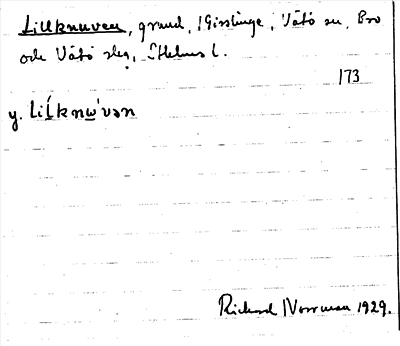 Lillknuven, grund, Gisslinge, Vätö sn, Bro
och Vätö slg, Sthlms l.
173
y. Liĺknɯ'vən
Richard Norrman 1929.